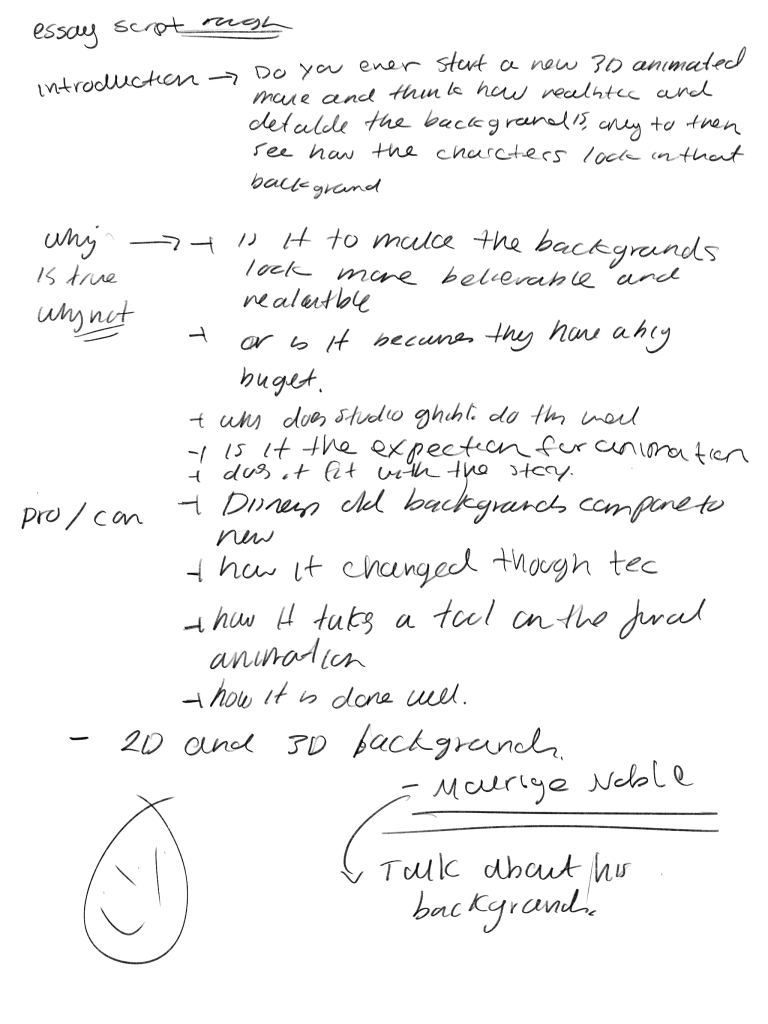 essay script rough
introduction → Do you ever start a new 3D animated
movie and think how realistic and
detailde the background is, only to then
see how the charcters look in that
background
why → + is it to make the backgrounds
is true look more believable and
why not realistible
+ or is it becuase they have a big
buget.
+ why does studio ghibli do this well
+ is it the expection for animation
+ does it fit with the story.
pro/con + Disneys old backgrounds compare to
new
+ how it changed though tec
+ how it takes a tool on the final
animation
+ how it is done well.
- 2D and 3D backgrounds.
- Maurige Noble
Talk about his
backgrounds.